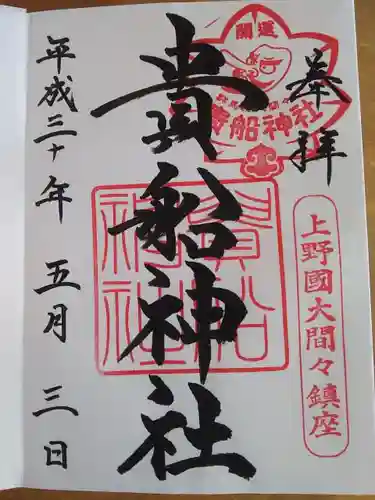 奉拝
開運
貴船神社
上野國大間々鎮座
貴船神社
貴船
神社
平成三十年五月三日